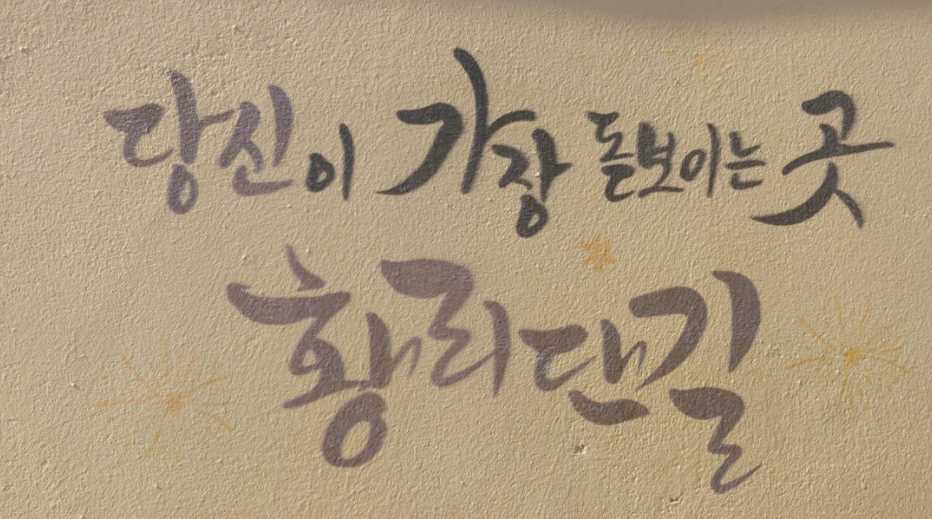 당신이 가장 돋보이는 곳
황리단길